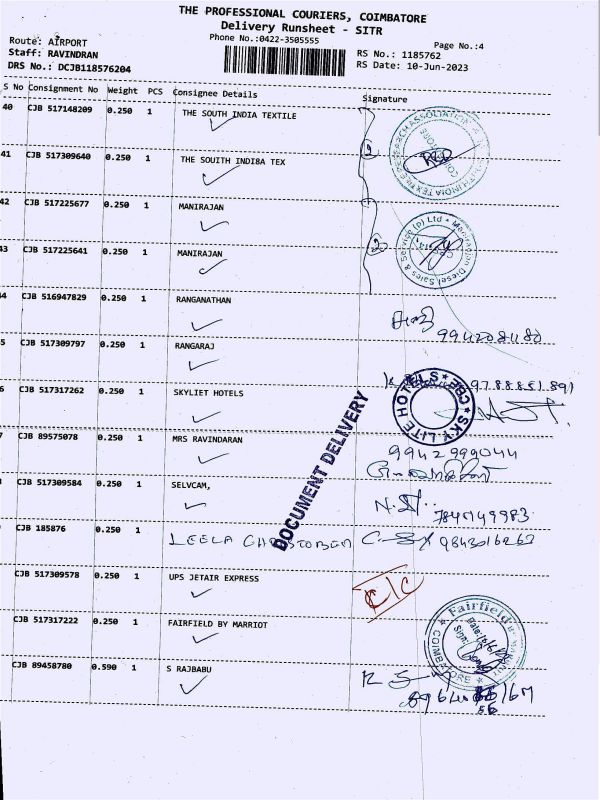 THE PROFESSIONAL COURIERS, COIMBATORE
Delivery Runsheet - SITR
Phone No.:0422-3505555
Page No.:4
Route: AIRPORT
Staff: RAVINDRAN
RS No.: 1185762
DRS No.: DCJB118576204
RS Date: 10-Jun-2023
S No Consignment No Weight PCS Consignee Details Signature
40 CJB 517148209 0.250 1 THE SOUTH INDIA TEXTILE
41 CJB 517309640 0.250 1 THE SOUITH INDI8A TEX
42 CJB 517225677 0.250 1 MANIRAJAN
43 CJB 517225641 0.250 1 MANIRAJAN
4 CJB 516947829 0.250 1 RANGANATHAN
5 CJB 517309797 0.250 1 RANGARAJ
9788851891
6 CJB 517317262 0.250 1 SKYLIET HOTELS
SKYLITE HOTELS CBE
7 CJB 89575078 0.250 1 MRS RAVINDARAN
9942999044
DOCUMENT DELIVERY
CJB 517309584 0.250 1 SELVCAM,
CJB 185876 0.250 1 LEELA
CJB 517309578 0.250 1 UPS JETAIR EXPRESS
CJB 517317222 0.250 1 FAIRFIELD BY MARRIOT
Fairfield
COIMBATORE
CJB 89458780 0.590 1 S RAJBABU